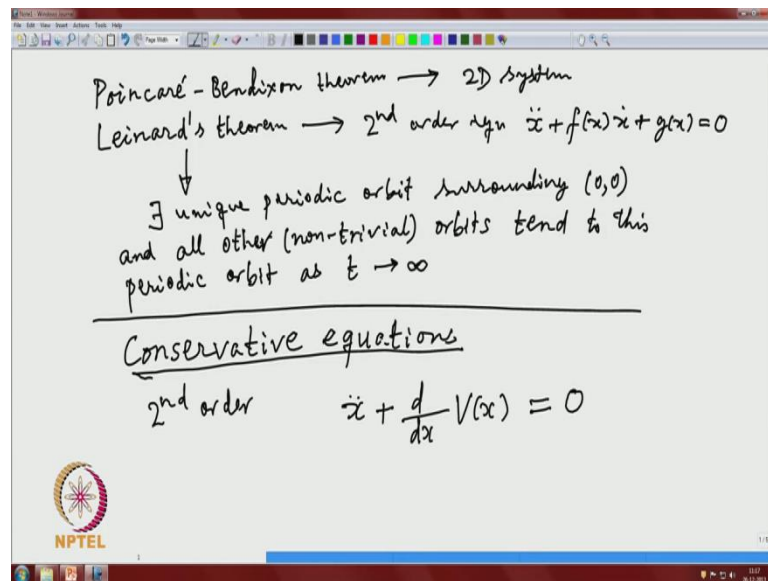 Note1 - Windows Journal
File Edit View Insert Actions Tools Help
Poincaré - Bendixon theorem → 2D system
Leinard's theorem → 2nd order eqn ẍ + f(x)ẋ + g(x) = 0
↓
∃ unique periodic orbit surrounding (0,0)
and all other (non-trivial) orbits tend to this
periodic orbit as t → ∞
Conservative equations
2nd order ẍ + d/dx V(x) = 0
NPTEL